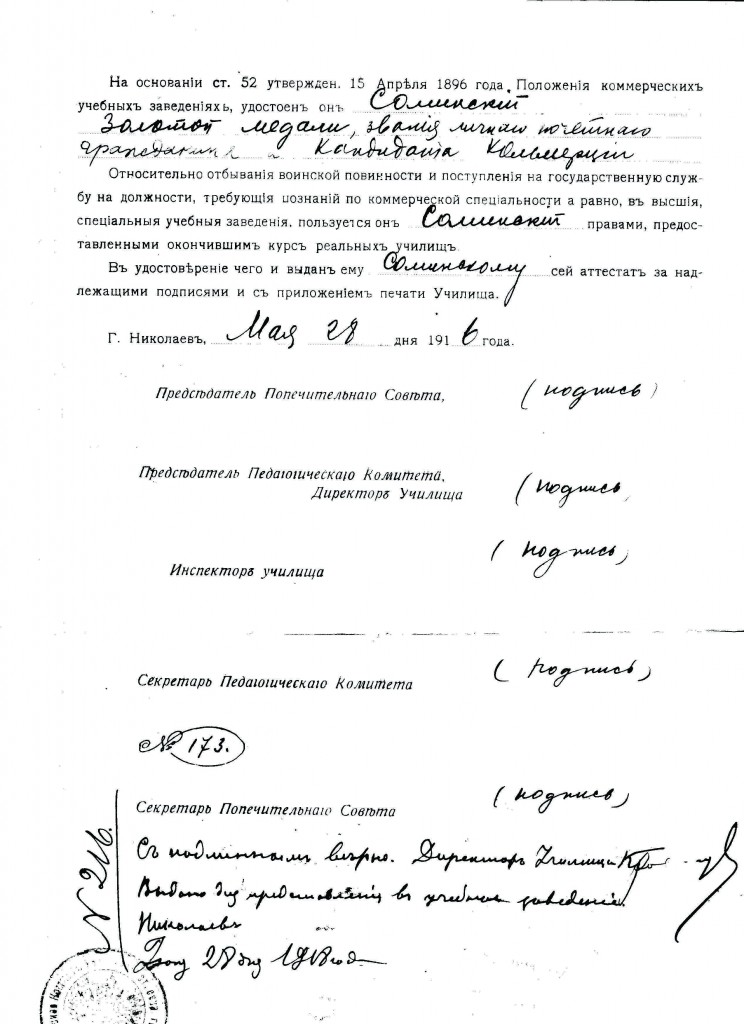 На основаніи ст. 52 утвержден. 15 Апрѣля 1896 года, Положенія коммерческихъ
учебныхъ заведеніяхъ, удостоен онъ Соминскій
Золотой медали, званія личнаго почетнаго
гражданина и Кандидата Коммерціи
Относительно отбыванія воинской повинности и поступленія на государственную служ-
бу на должности, требующія познаній по коммерческой спеціальности а равно, въ высшія,
спеціальныя учебныя заведенія, пользуется онъ Соминскій правами, предос-
тавленными окончившимъ курсъ реальныхъ училищъ
Въ удостовѣреніе чего и выданъ ему Соминскому сей аттестат за над-
лежащими подписями и съ приложеніемъ печати Училища.
Г. Николаевъ, Мая 28 дня 1916 года.
Предсѣдатель Попечительнаго Совѣта, (подпись)
Предсѣдатель Педагогическаго Комитета,
Директоръ Училища (подпись
Инспекторъ училища (подпись)
Секретарь Педагогическаго Комитета (подпись)
№ 173.
Секретарь Попечительнаго Совѣта (подпись)
N 216.
Съ подлиннымъ вѣрно. Директоръ Училища
Выдано для представленія въ учебныя заведенія.
Николаевъ
28 дня 1918 года